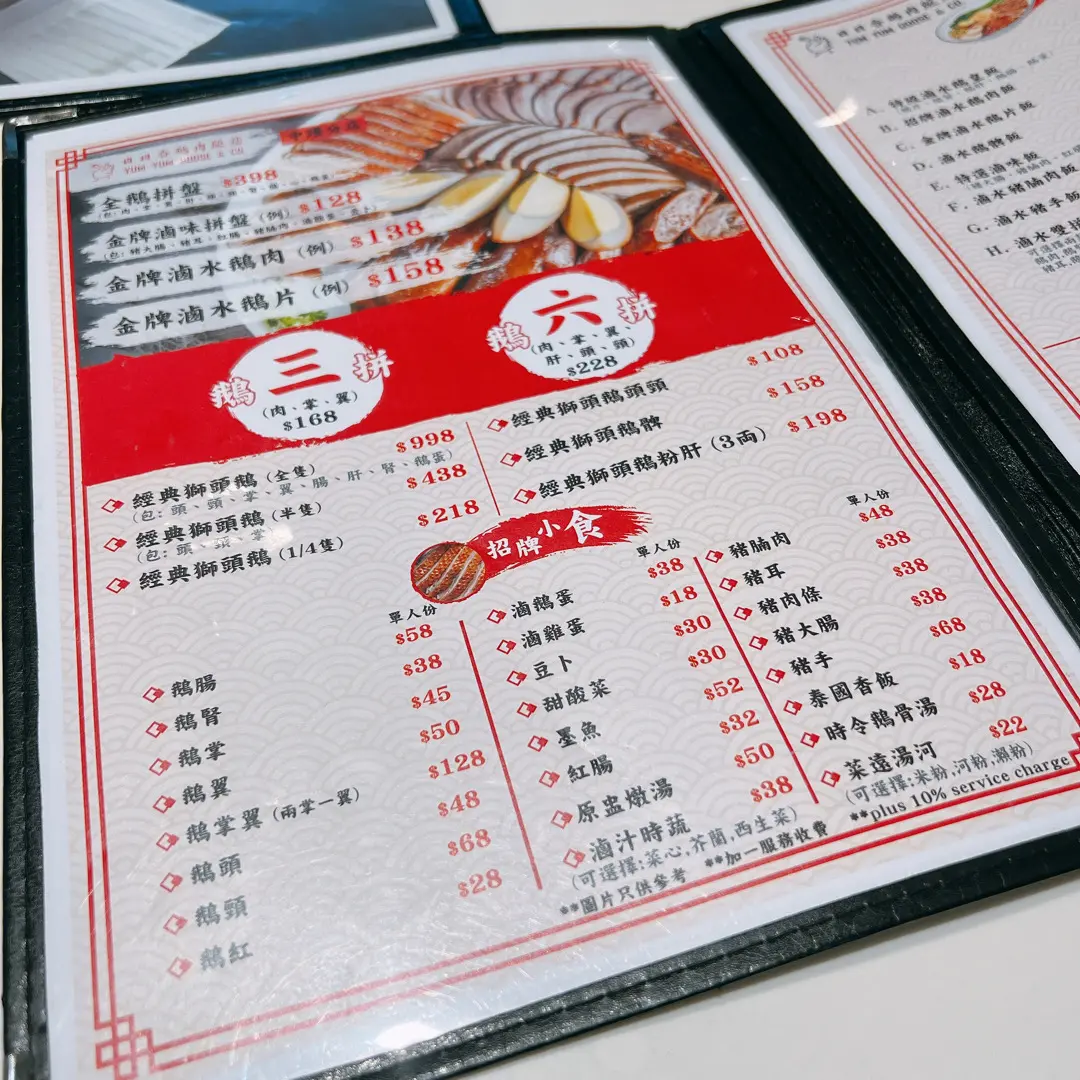 YUM YUM GOOSE & CO.
中環分店
全鵝拼盤 $398
金牌滷味拼盤 (例) $128
金牌滷水鵝肉 (例) $138
金牌滷水鵝片 (例) $158
鵝三拼
(肉、掌、翼)
$168
鵝六拼
(肉、掌、翼、
肝、頭、頸)
$228
經典獅頭鵝 (全隻) $998
(包: 頭、頸、掌、翼、腸、肝、腎、鵝蛋)
經典獅頭鵝 (半隻) $438
(包: 頭、頸、掌
經典獅頭鵝 (1/4隻) $218
經典獅頭鵝頭頸 $108
經典獅頭鵝髀 $158
經典獅頭鵝粉肝 (3両) $198
招牌小食
單人份
鵝腸 $58
鵝腎 $38
鵝掌 $45
鵝翼 $50
鵝掌翼 (兩掌一翼) $128
鵝頭 $48
鵝頸 $68
鵝紅 $28
單人份
滷鵝蛋 $38
滷雞蛋 $18
豆卜 $30
甜酸菜 $30
墨魚 $52
紅腸 $32
原盅燉湯 $50
滷汁時蔬 $38
(可選擇:菜心,芥蘭,西生菜)
單人份
豬腩肉 $48
豬耳 $38
豬肉條 $38
豬大腸 $38
豬手 $68
泰國香飯 $18
時令鵝骨湯 $28
菜遠湯河 $22
(可選擇:米粉,河粉,瀨粉)
**圖片只供參考 **加一服務收費 **plus 10% service charge
YUM YUM GOOSE & CO.
A. 特級滷水鵝皇飯
B. 招牌滷水鵝肉飯
C. 金牌滷水鵝片飯
D. 滷水鵝髀飯
E. 特選滷味飯
F. 滷水豬腩肉飯
G. 滷水豬手飯
H. 滷水雙拼